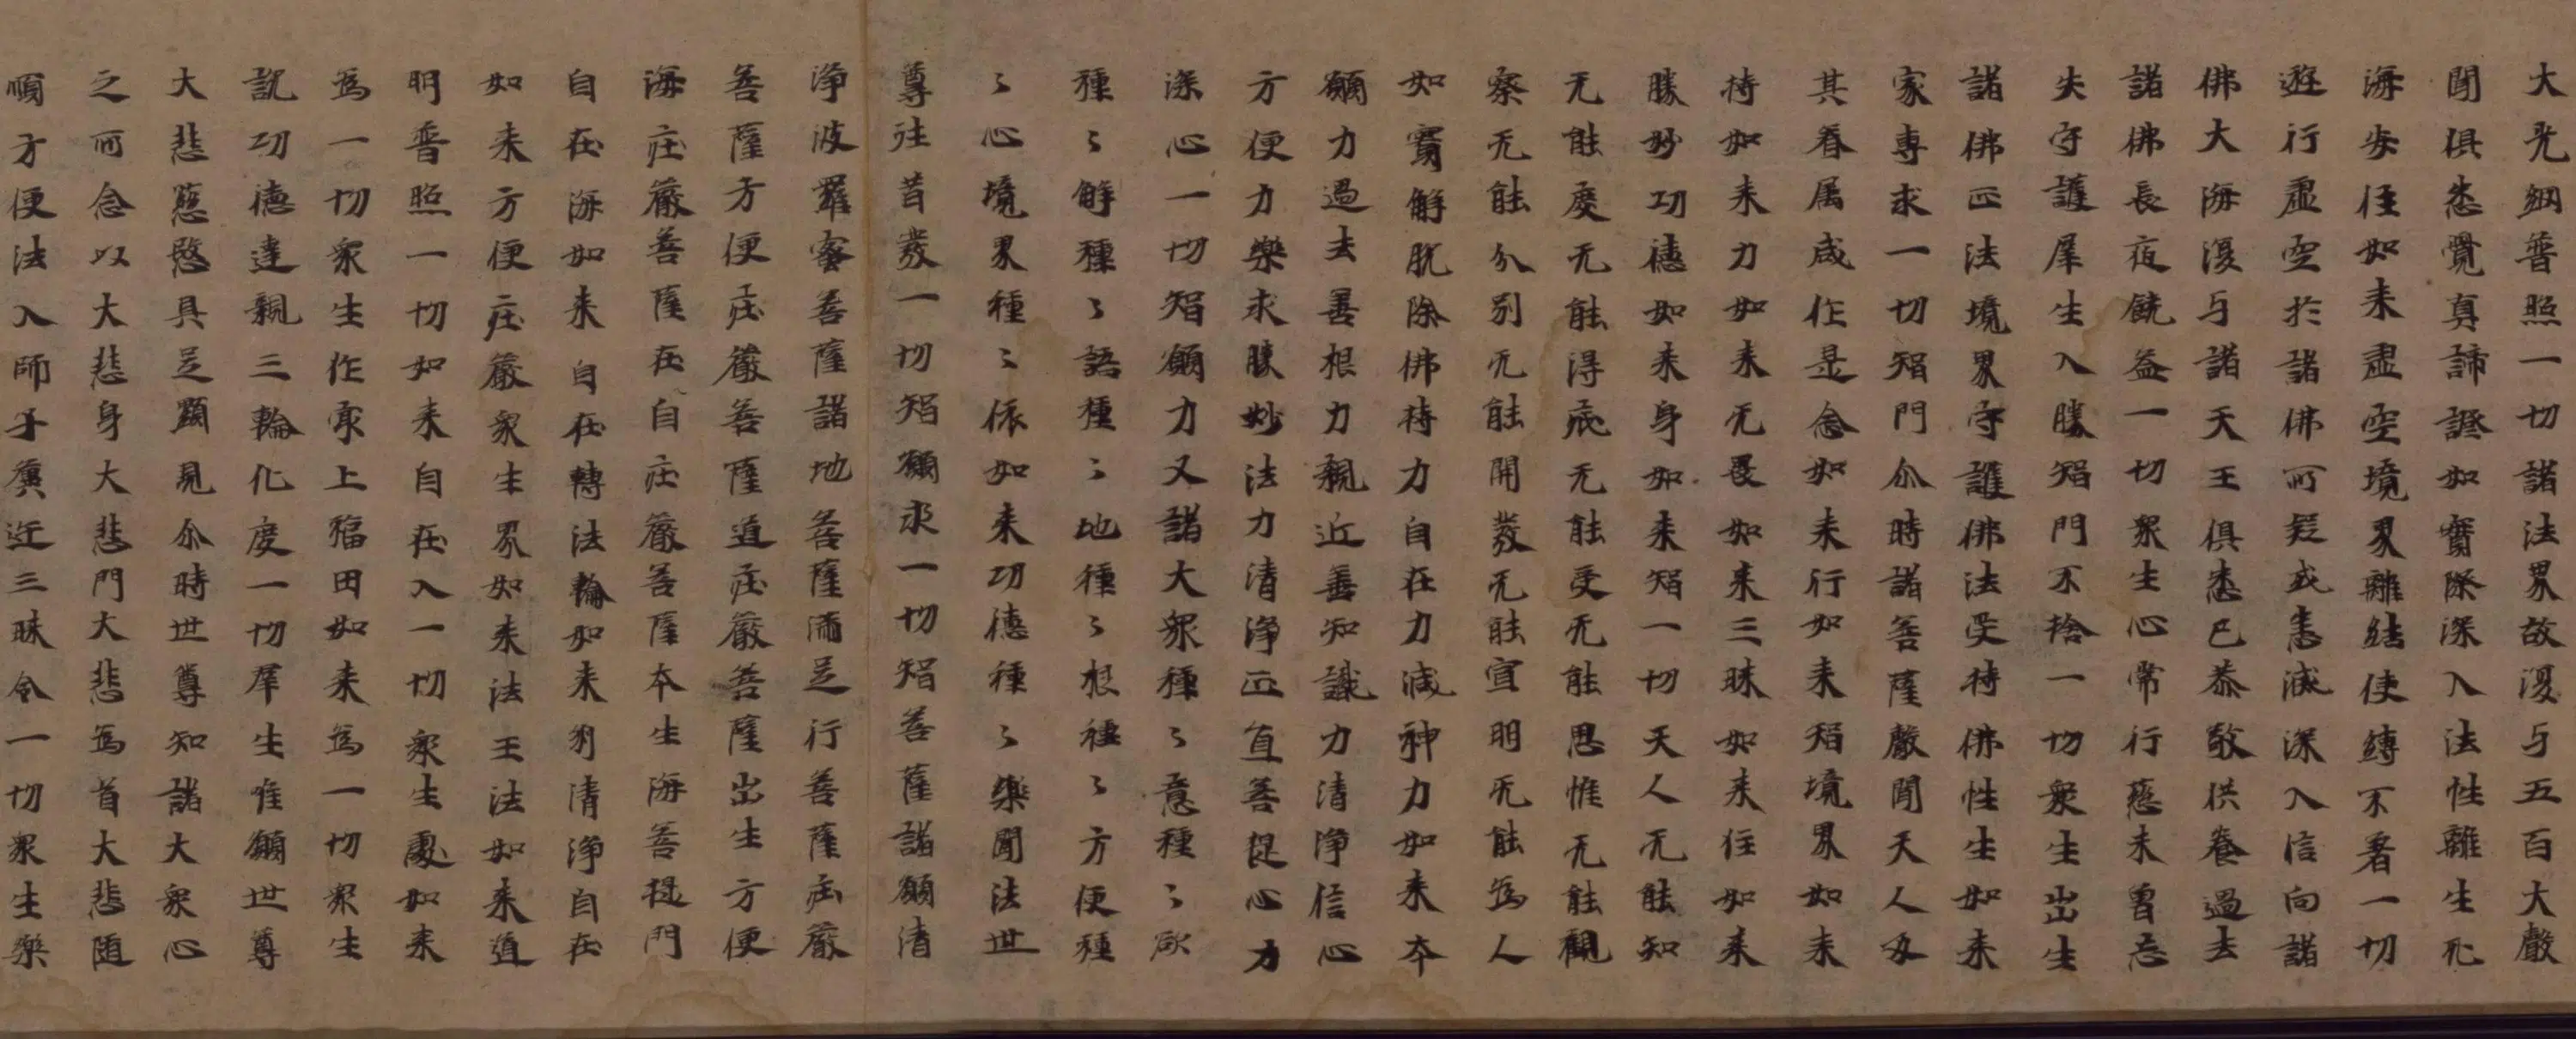 大光網普照一切諸法界故復与五百大聲
聞俱悉覺真諦證如實際深入法性離生死
海安住如来虛空境界離結使縛不著一切
遊行虛空於諸佛所疑或悉滅深入信向諸
佛大海復与諸天王俱悉已恭敬供養過去
諸佛長夜饒益一切衆生心常行慈未曾忘
失守護羣生入勝智門不捨一切衆生出生
諸佛正法境界守護佛法受持佛性生如来
家專求一切智門尒時諸菩薩聲聞天人及
其眷属咸作是念如来行如来智境界如来
持如来力如来无畏如来三昧如来住如来
勝妙功德如来身如来智一切天人无能知
无能度无能得底无能受无能思惟无能觀
察无能分別无能開發无能宣明无能為人
如實解脫除佛持力自在力威神力如来本
願力過去善根力親近善知識力清淨信心
方便力樂求勝妙法力清淨正直菩提心力
深心一切智願力又諸大衆種〻意種〻欲
種〻解種〻語種〻地種〻根種〻方便種
〻心境界種〻依如来功德種〻樂聞法世
尊往昔發一切智願求一切智菩薩諸願清
淨波羅蜜菩薩諸地菩薩滿足行菩薩庄嚴
菩薩方便庄嚴菩薩道庄嚴菩薩出生方便
海庄嚴菩薩在自庄嚴菩薩本生海菩提門
自在海如来自在轉法輪如来刹清淨自在
如来方便庄嚴衆生界如来法王法如来道
明普照一切如来自在入一切衆生處如来
為一切衆生作㝡上福田如来為一切衆生
說功德達親三輪化度一切羣生唯願世尊
大悲慈愍具足顯見尒時世尊知諸大衆心
之所念以大悲身大悲門大悲為首大悲随
順方便法入師子奮迅三昧令一切衆生樂